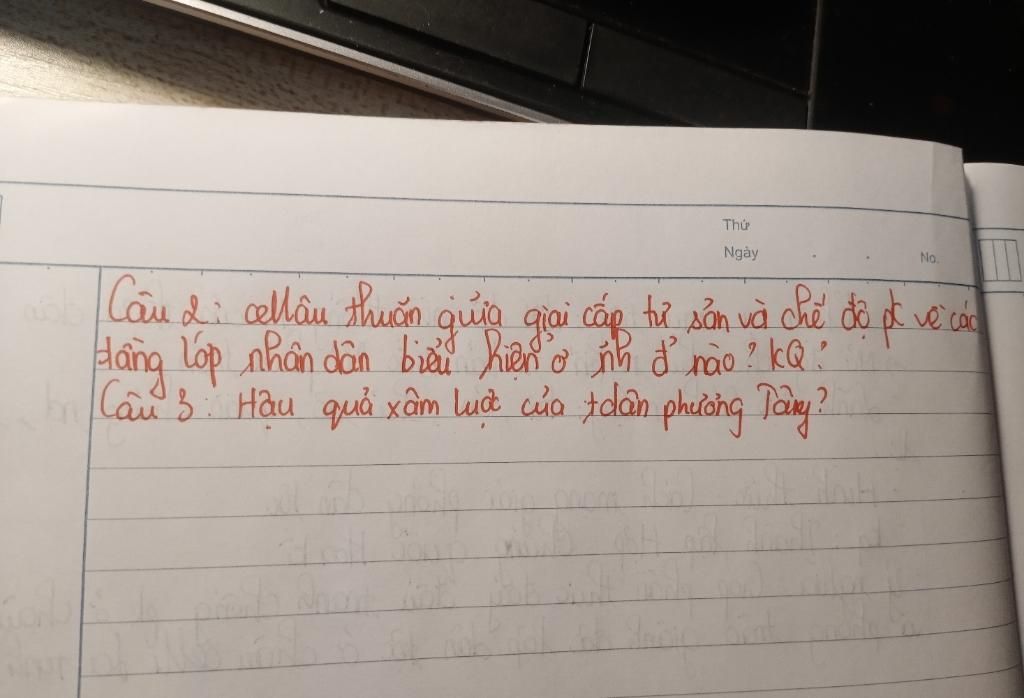 Thứ
Ngày . . No.
Câu 2: Mâu thuẫn giữa giai cấp tư sản và chế độ pk về các
tầng lớp nhân dân biểu hiện ở nào? KQ?
Câu 3: Hậu quả xâm lược của tdân phương Tây?